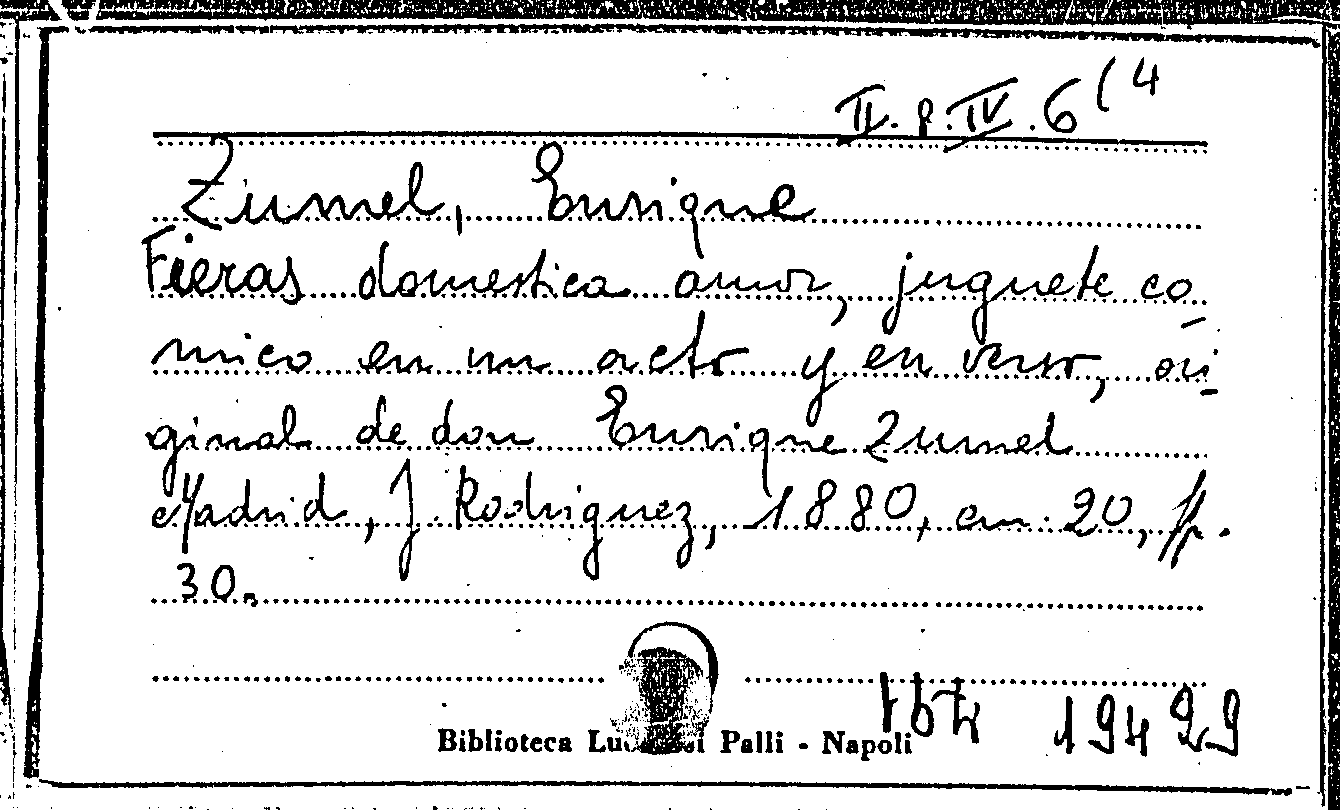 II. P. IV. 6 (4
Zumel, Enrique
Fieras domestica amor, juguete co_
mico en un acto y en verso, ori_
ginal de don Enrique Zumel
Madrid, J. Rodriguez, 1880, cm. 20, pp.
30.
Biblioteca Palli - Napoli
19429